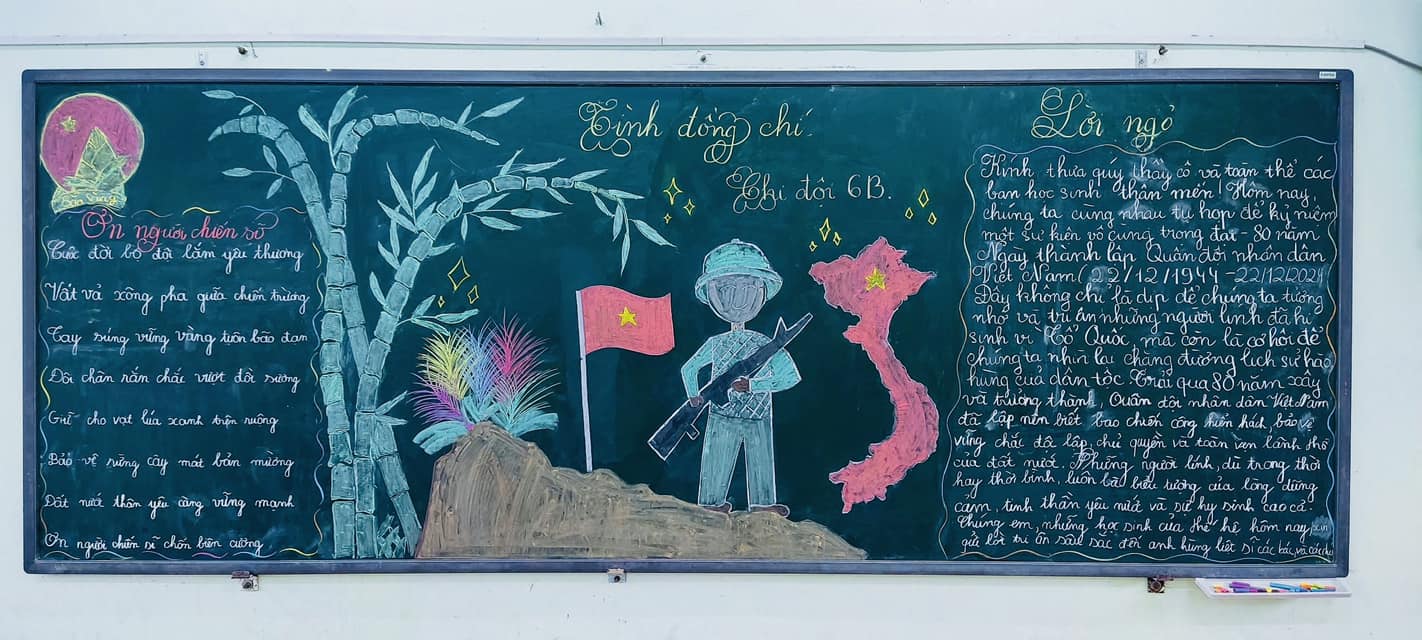 Sẵn sàng
Ơn người chiến sĩ
Cuộc đời bộ đội lắm yêu thương
Vất vả xông pha giữa chiến trường
Tay súng vững vàng luôn bão đạn
Đôi chân rắn chắc vượt đồi sương
Giữ cho vạt lúa xanh trên ruộng
Bảo vệ rừng cây mát bản mường
Đất nước thân yêu càng vững mạnh
Ơn người chiến sĩ chốn biên cương
Tình đồng chí.
Chi đội 6B.
Lời ngỏ
Kính thưa quý thầy cô và toàn thể các
bạn học sinh thân mến! Hôm nay,
chúng ta cùng nhau tụ họp để kỷ niệm
một sự kiện vô cùng trọng đại - 80 năm
Ngày thành lập Quân đội nhân dân
Việt Nam (22/12/1944 - 22/12/2024
Đây không chỉ là dịp để chúng ta tưởng
nhớ và tri ân những người lính đã hi
sinh vì Tổ Quốc, mà còn là cơ hội để
chúng ta nhìn lại chặng đường lịch sử hào
hùng của dân tộc. Trải qua 80 năm xây
và trưởng thành, Quân đội nhân dân Việt Nam
đã lập nên biết bao chiến công hiển hách, bảo vệ
vững chắc độc lập, chủ quyền và toàn vẹn lãnh thổ
của đất nước. Những người lính, dù trong thời
hay thời bình, luôn là biểu tượng của lòng dũng
cảm, tinh thần yêu nước và sự hy sinh cao cả.
Chúng em, những học sinh của thế hệ hôm nay, xin
gửi lời tri ân sâu sắc đến anh hùng liệt sĩ các bác, và các chú